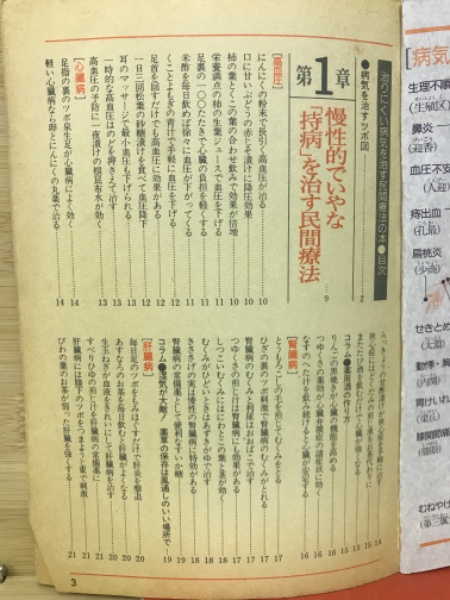 治りにくい病気を治す民間療法の本●目次
●病気を治すツボ図……2
第1章
慢性的でいやな
「持病」を治す民間療法……9
[高血圧]
にんにくの粉末で長引く高血圧が治る……10
口に甘いぶどうの赤じそ漬けに降圧効果……10
柿の葉とくこの葉の合わせ飲みで効果が倍増……10
栄養満点の柿の生葉ジュースで血圧を下げる……10
足裏の一〇〇たたきで心臓の負担を軽くする……11
米酢を毎日飲めば徐々に血圧が下がってくる……11
くことよもぎの青汁で手軽に血圧を下げる……11
足首を回すだけでも高血圧に効果がある……12
一日三回松葉の砂糖漬けを食べて血圧降下……12
耳のマッサージで最小血圧も下げられる……13
一時的な高血圧はのどを押さえて治す……13
高血圧の予防に一夜漬けの根昆布水が効く……13
[心臓病]
足指の裏のツボ泉生足が心臓病によく効く……14
軽い心臓病なら卵とにんにくの丸薬で治る……14
コラム●薬草風呂の作り方……15
りんごの黒焼きが心臓の機能を高める……15
つゆくさの薬効が心臓弁膜症の諸症状に効く……16
なすのへただけを飲み続けると心臓が安定する……16
[腎臓病]
とうもろこしの毛を煎じてむくみをとる……17
ひざの裏のツボ刺激で腎臓病のむくみがとれる……17
腎臓病のむくみと利尿はおおばこで治す……17
つゆくさの煎じ汁は腎臓病にも効果がある……18
しつこいむくみにはにわとこの葉と茎が効く……18
むくみがひどいときはあずきがゆで治す……18
きささげの実は慢性の腎臓病に特効がある……18
腎臓病の常備薬として便利なすいか糖……19
コラム●湿気が大敵!　薬草の保存は風通しのいい場所で……19
[肝臓病]
毎日足のツボをもみほぐすだけで肝炎を撃退……20
あすなろのお茶を毎日飲むと肝臓がよくなる……20
生玉ねぎが血液をきれいにして肝臓病を治す……20
すべりひゆの煎じ汁を肝臓病の常備薬に……21
肝臓病には膝下のツボをつまようじ束で刺激……21
びわの葉のお茶が弱った肝臓を強くする……21
3
[病気
生理不順
鼻炎
(迎香)
血圧不安
(人迎)
痔出血
(孔最)
扁桃炎
(少商)
せきとめ
動悸・胸
(内関)
胃けいれ
(梁丘)
膝関節痛
むねやけ